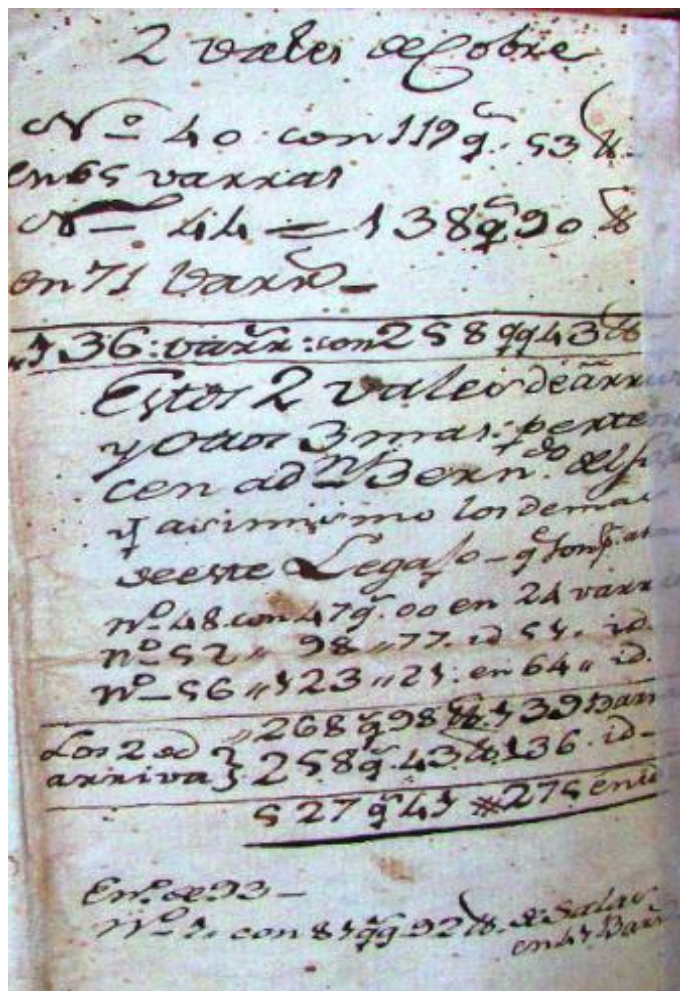 2 vales de Cobre
Nº 40 con 119 q.s 53 lb
en 65 varras
Nº 44 = 138 q.s 90 lb
en 71 varr.s
136 : varr.s : con 258 qq 43 lb
Estos 2 vales de arri
y otros 3 mas : perte
cen a d.n Bern.do del
q asimismo los demas
de este Legajo - q.e son p.
nº 48 con 47 q.s 00 en 24 varr
nº 52 " 98 " 77. id 51. id.
nº 56 " 123 " 21 : en 64 " id.
268 q.s 98 lb 139 barr
Los 2 de arriva } 258 q.s 43 lb 136 . id
527 q.s 41 # 275 en
En.º de 93 -
Nº 1. con 81 qq 92 lb. de Salas
en 41 Barr